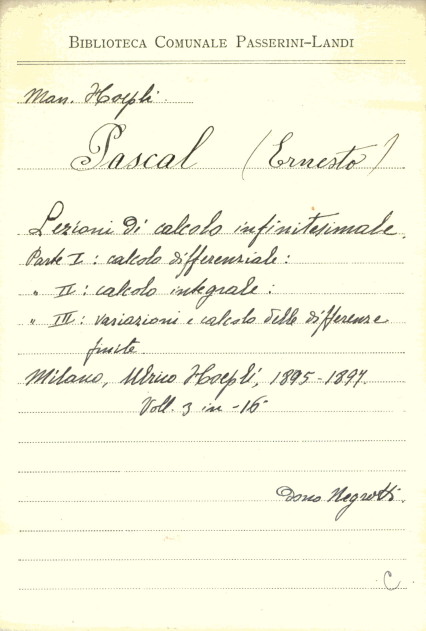 BIBLIOTECA COMUNALE PASSERINI-LANDI
Man. Hoepli.
Pascal (Ernesto)
Lezioni di calcolo infinitesimale.
Parte I: calcolo differenziale:
" II: calcolo integrale:
" III: variazioni e calcolo delle differenze
finite.
Milano, Ulrico Hoepli, 1895-1897.
Voll. 3 in -16°
Dono Negrotti.
C